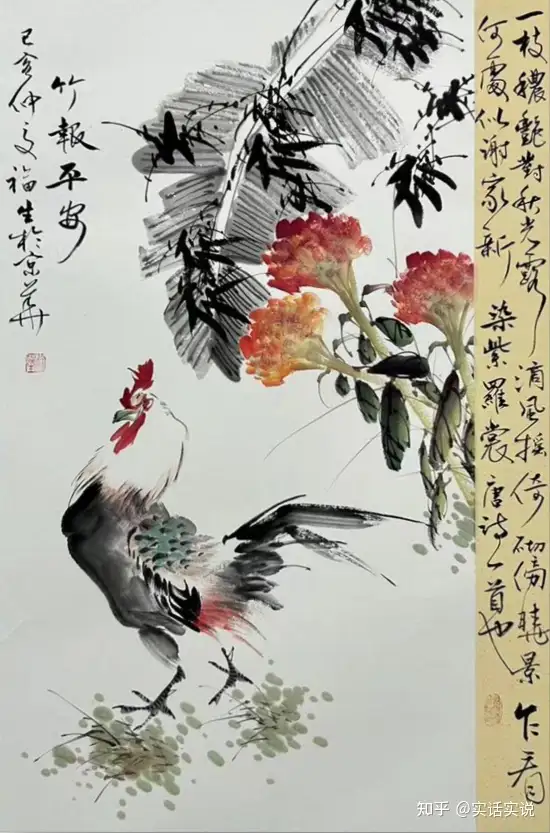 一枝穠艷對秋光露滴風搖倚砌傍曉景乍看
何處似謝家新染紫羅裳唐詩一首也
竹報平安
己亥仲夏福生於京華
知乎 @实话实说